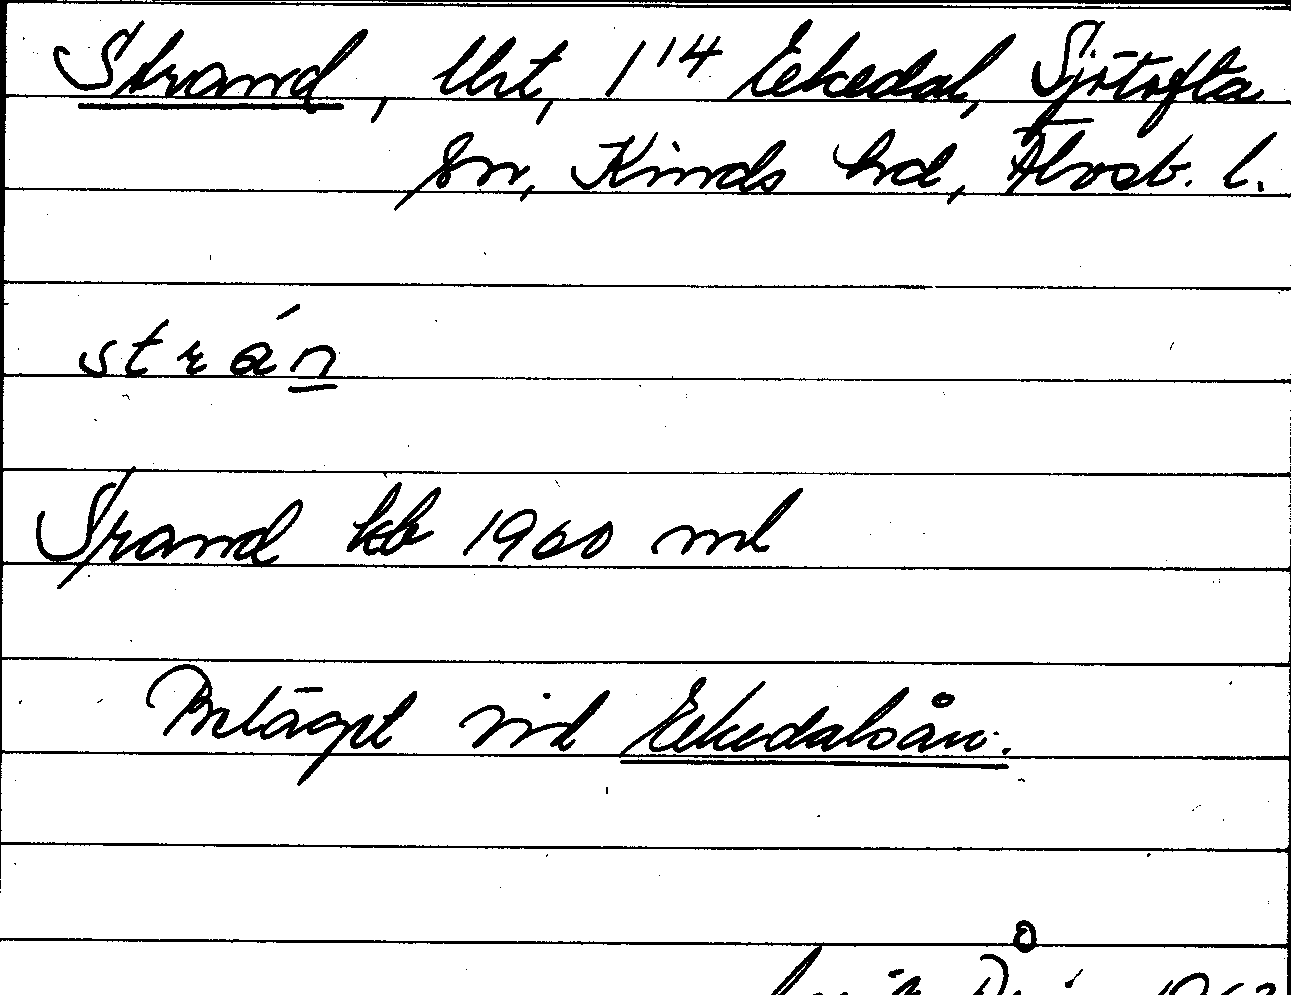 Strand, lht, 1¹⁴ Ekedal, Sjötofta
sn, Kinds hd, Älvsb. l.
strán
Srand kb 1960 ml
Beläget vid Ekedalsån.